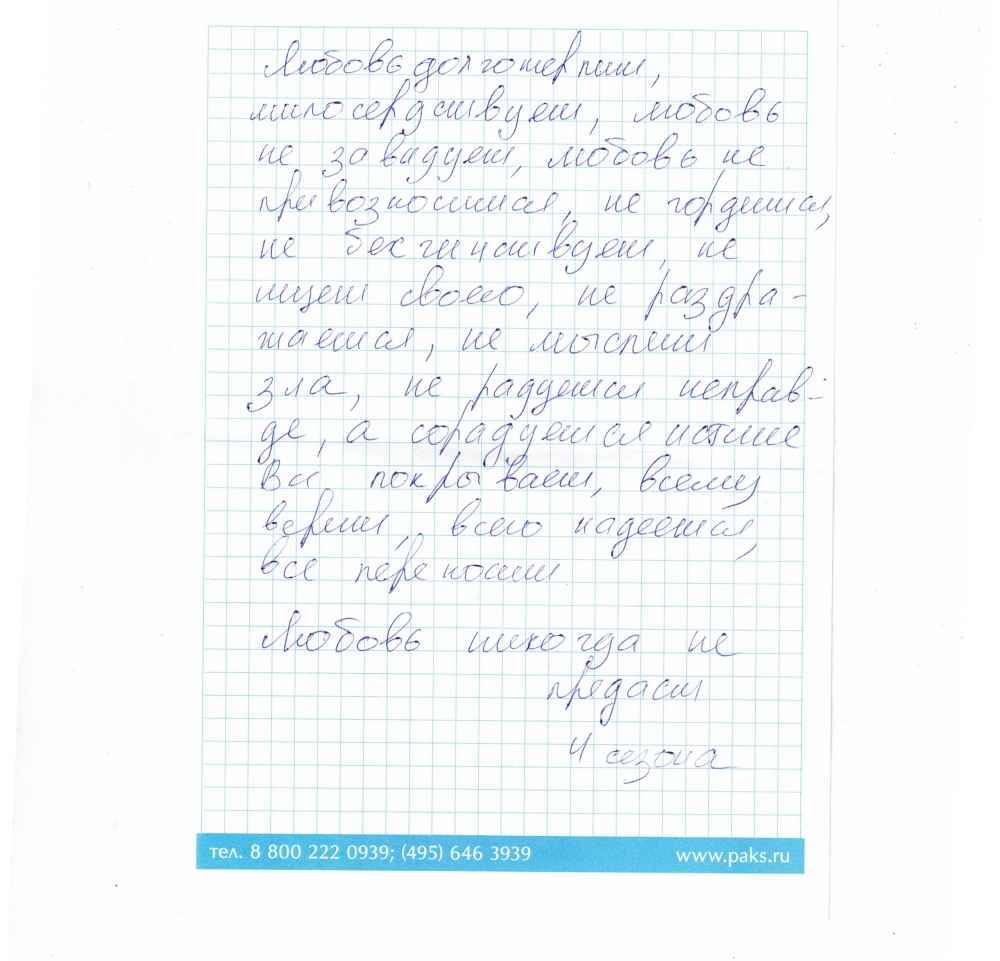 Любовь долготерпит,
милосердствует, любовь
не завидует, любовь не
привозносится, не гордится,
не бесчинствует, не
ищет своего, не раздра-
жается, не мыслит
зла, не радуется неправ-
де, а сорадуется истине
Все покрывает, всему
верит, всего надеется,
все переносит.
Любовь никогда не
предаст
4 сезона
тел. 8 800 222 0939; (495) 646 3939
www.paks.ru